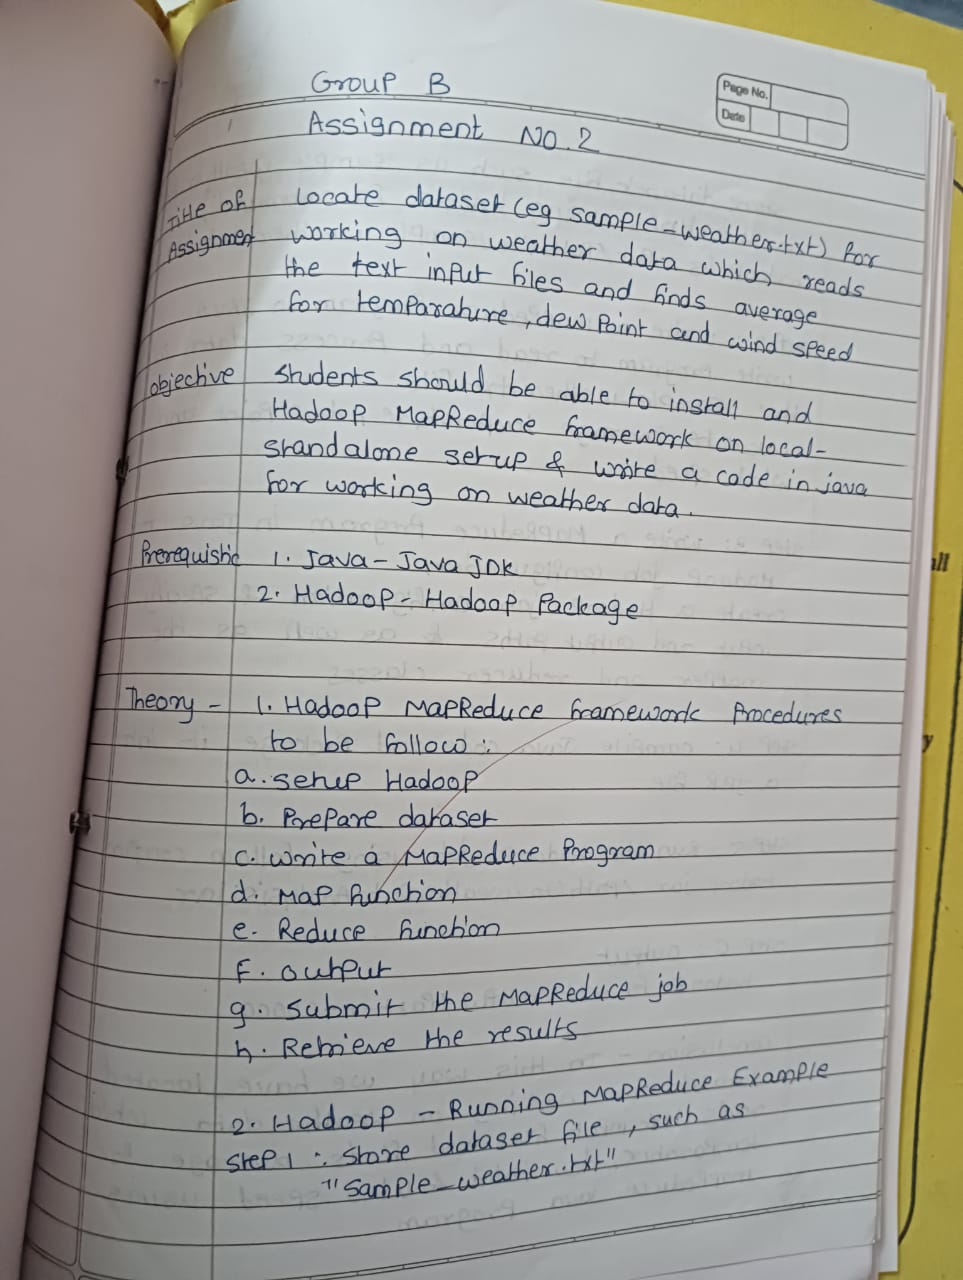 Group B
Page No.
Date
Assignment No. 2
Title of Assignment
Locate dataset (eg sample-weather.txt) for
working on weather data which reads
the text input files and finds average
for temparature, dew point and wind speed
objective
Students should be able to install and
Hadoop MapReduce framework on local-
standalone setup & write a code in java
for working on weather data.
Prerequistic
1. Java - Java JDK
2. Hadoop - Hadoop Package
Theory -
1. Hadoop MapReduce framework Procedures
to be follow :
a. setup Hadoop
b. Prepare dataset
c. write a MapReduce Program
d. Map function
e. Reduce function
f. output
g. Submit the MapReduce job
h. Retrieve the results
2. Hadoop - Running MapReduce Example
Step 1 : Store dataset file, such as
"Sample-weather.txt"
all
y